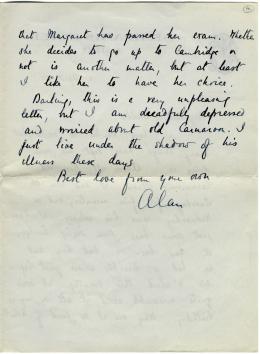 that Margaret has passed her exam. Whether
she decides to go up to Cambridge or
not is another matter, but at least
I like her to have her choice.
Darling, this is a very unpleasing
letter, but I am dreadfully depressed
and worried about old Carnarvon. I
just live under the shadow of his
illness these days
Best love from your own
Alan